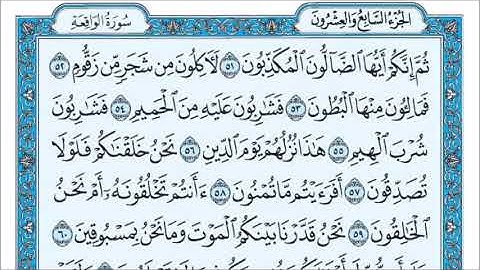 الجزء السابع والعشرون سورة الواقعة
ثُمَّ إِنَّكُمْ أَيُّهَا ٱلضَّآلُّونَ ٱلْمُكَذِّبُونَ ٥١ لَأٓكِلُونَ مِن شَجَرٍ مِّن زَقُّومٍ ٥٢
فَمَالِـُٔونَ مِنْهَا ٱلْبُطُونَ ٥٣ فَشَٰرِبُونَ عَلَيْهِ مِنَ ٱلْحَمِيمِ ٥٤ فَشَٰرِبُونَ
شُرْبَ ٱلْهِيمِ ٥٥ هَٰذَا نُزُلُهُمْ يَوْمَ ٱلدِّينِ ٥٦ نَحْنُ خَلَقْنَٰكُمْ فَلَوْلَا
تُصَدِّقُونَ ٥٧ أَفَرَءَيْتُم مَّا تُمْنُونَ ٥٨ ءَأَنتُمْ تَخْلُقُونَهُۥٓ أَمْ نَحْنُ
ٱلْخَٰلِقُونَ ٥٩ نَحْنُ قَدَّرْنَا بَيْنَكُمُ ٱلْمَوْتَ وَمَا نَحْنُ بِمَسْبُوقِينَ ٦٠